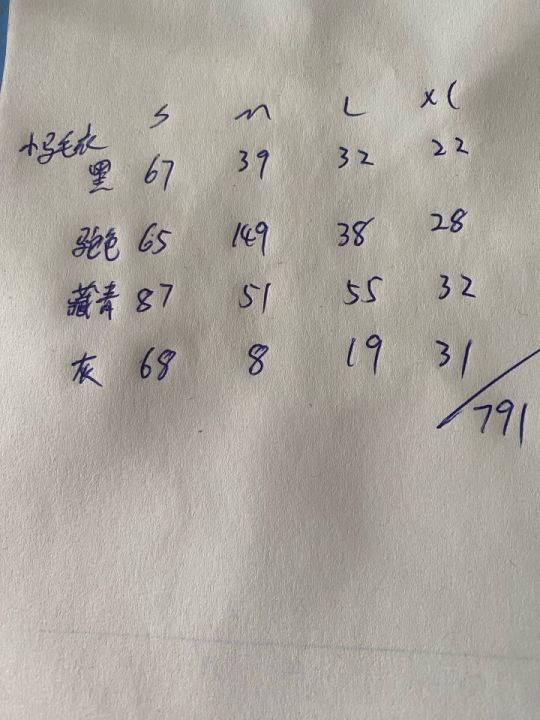 S M L XL
小马毛衣
黑 67 39 32 22
驼色 65 149 38 28
藏青 87 51 55 32
灰 68 8 19 31
791